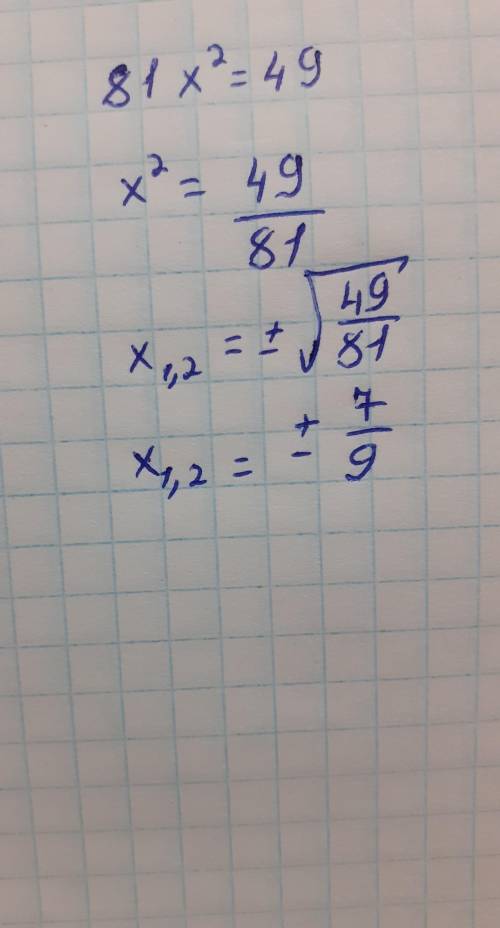 81x² = 49
x² = 49/81
x₁,₂ = ± √(49/81)
x₁,₂ = ± 7/9